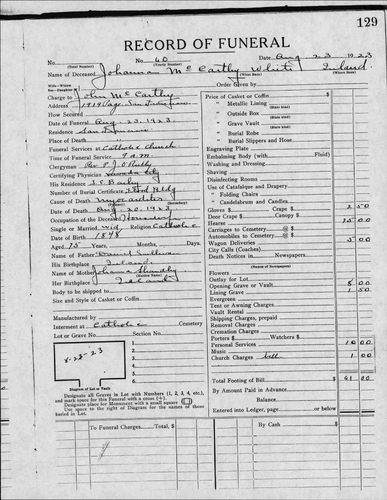 129
RECORD OF FUNERAL
No. No. 60 Date Aug 23 1923
(Total Number) (Yearly Number)
Name of Deceased Johanna McCarthy White Ireland
(What Race) (Where Born)
Charge to John McCarthy
Order Given by
Address 1919 Page San Francisco
How Secured
Date of Funeral Aug 23, 1923
Residence San Francisco
Place of Death
Funeral Services at Catholic Church
Time of Funeral Service 9 a.m
Clergyman Rev P. J. O'Reilly
Certifying Physician
His Residence
Number of Burial Certificate
Cause of Death Myocarditis
Date of Death Aug 20, 1923
Occupation of the Deceased Housewife
Single or Married Wid Religion Catholic
Date of Birth 1848
Aged 75 Years, Months, Days.
Name of Father Daniel Sullivan
His Birthplace Ireland
Name of Mother Johanna
Her Birthplace Ireland
Body to be shipped to
Size and Style of Casket or Coffin
Manufactured by
Interment at Catholic Cemetery
Lot or Grave No. Section No.
8-23-23
Diagram of Lot or Vault
Designate all Graves in Lot with Numbers (1, 2, 3, 4, etc.),
and mark space for this Funeral with a cross (+).
Designate place for Monument with a small square
Use space to the right of Diagram for the names of those
buried in Lot.
Price of Casket or Coffin
" Metallic Lining
(State kind)
" Outside Box
(State kind)
" Grave Vault
(State kind)
" Burial Robe
(State kind)
" Burial Slippers and Hose
Engraving Plate
Embalming Body (with Fluid)
Washing and Dressing
Shaving
Disinfecting Rooms
Use of Catafalque and Drapery
" Folding Chairs
" Candelabrum and Candles
Gloves $ Crape $ 2 50
Door Crape $ Canopy $
Hearse 25 00
Carriages to Cemetery @ $
Automobiles to Cemetery @ $
Wagon Deliveries 5 00
City Calls (Coaches)
Death Notices in Newspapers
(Names of Newspapers)
Flowers
Outlay for Lot
Opening Grave or Vault 8 00
Lining Grave 1 50
Evergreen
Tent or Awning Charges
Vault Rental
Shipping Charges, prepaid
Removal Charges
Cremation Charges
Porters $ Watchers $
Personal Services 10 00
Music
Church Charges bell 1 00
Total Footing of Bill $ 61 00
By Amount Paid in Advance
Balance
Entered into Ledger, page or below
To Funeral Charges, Total $
By Cash $